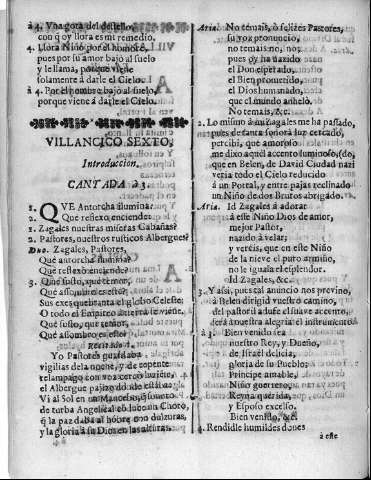 à 4. Vna gota del destello,
con q̃ y llora es mi remedio.
4. Llora Niño por el hombre,
pues por su amor bajò al suelo
y le llama, porque viene
solamente à darle el Cielo.
à 4. Por el hombre bajò al suelo,
porque viene à darle el Cielo.
VILLANCICO SEXTO,
Introduccion.
CANTADA à 3.
1. QVE Antorcha ilumina?
2. Què reflexo enciende?
1. Zagales nuestras miseras Cabañas?
2. Pastores, nuestros rusticos Albergues?
Duo. Zagales, Pastores,
Què antorcha ilumina?
Què reflexo enciende?
3. Què susto, què temor,
Què assombro es este?
Sus exes quebranta el globo Celeste;
O todo el Empireo à tierra se viene,
Què susto, què temor,
Què assombro es este?
Recitado
Yo Pastores guardaba
vigilias de la noche, y de repente
relampago con voz cerco luziente,
el Albergue pajizo
Vi al Sol en un Mancebo,
de turba Angelical
q̃ la paz daba al hõbre con dulzuras,
y la gloria à su Dios en las alturas.
Aria. No temais, ò felizes Pastores,
su voz pronunciò,
no temais no, no;
pues oy ha nazido
el Don esperado,
el Bien prometido,
el Dios humanado,
que el mundo anhelò.
No temais, &c.
2. Lo mismo à mi Zagales me ha passado,
pues de tanta sonora luz cercado,
percibì, que amoroso
me dixo aquel accento luminoso, (do,
que en Belen, de David Ciudad nazi
veria todo el Cielo reducido
à un Portal, y entre pajas reclinado
un Niño de dos Brutos abrigado.
Aria. Id Zagales à adorar
à este Niño Dios de amor,
mejor Pastor,
nazido à velar;
y vereis, que en este Niño
de la nieve el puro armiño,
no le iguala el esplendor.
Id Zagales, &c.
3. Y assi, pues tal anuncio nos previno,
à Belen dirigid vuestro camino,
del pastoril adufe el suave accento,
darà à nuestra alegria el instrumento
à 3. Bien venido sea
nuestro Rey, y Dueño,
de Israel delicia,
gloria de su Pueblo;
Principe amable,
Niño guerrero,
Reyna querida,
y Esposo excelso.
Bien venido, &c.
4. Rendidle humildes dones
à este